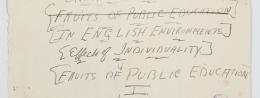 [FRUITS OF PUBLIC EDUCATION
IN ENGLISH ENVIRONMENTS]
{Effects of INDIVIDUALITY}
[FRUITS OF PUBLIC EDUCATION
I